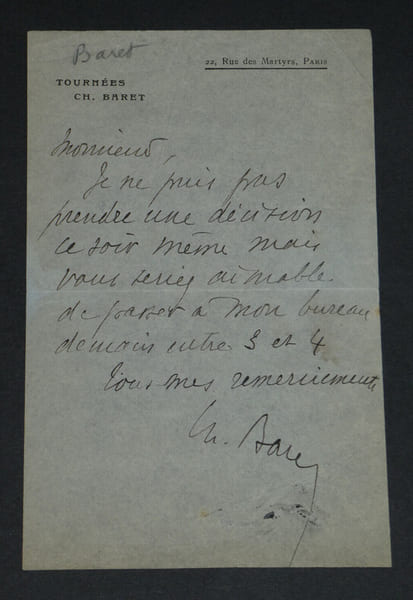 Baret
22, Rue des Martyrs, PARIS
TOURNÉES
CH. BARET
Monsieur,
Je ne puis pas
prendre une décision
ce soir même mais
vous seriez aimable
de passer à mon bureau
demain entre 3 et 4
Tous mes remerciements
Ch. Baret